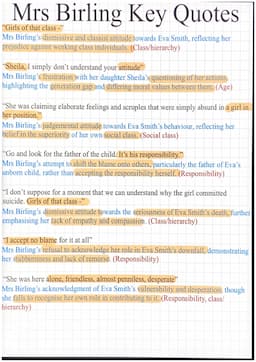 Mrs Birling Key Quotes
"Girls of that class -"
Mrs Birling's dismissive and classist attitude towards Eva Smith, reflecting her
prejudice against working class individuals. (Class/hierarchy)
"Sheila, I simply don't understand your attitude"
Mrs Birling's frustration with her daughter Sheila's questioning of her actions,
highlighting the generation gap and differing moral values between them. (Age)
"She was claiming elaborate feelings and scruples that were simply absurd in a girl in
her position."
Mrs Birling's judgemental attitude towards Eva Smith's behaviour, reflecting her
belief in the superiority of her own social class. (Social class)
"Go and look for the father of the child. It's his responsibility."
Mrs Birling's attempt to shift the blame onto others, particularly the father of Eva's
unborn child, rather than accepting the responsibility herself. (Responsibility)
"I don't suppose for a moment that we can understand why the girl committed
suicide. Girls of that class -"
Mrs Birling's dismissive attitude towards the seriousness of Eva Smith's death, further
emphasising her lack of empathy and compassion. (Class/hierarchy)
"I accept no blame for it at all"
Mrs Birling's refusal to acknowledge her role in Eva Smith's downfall, demonstrating
her stubbornness and lack of remorse. (Responsibility)
"She was here alone, friendless, almost penniless, desperate"
Mrs Birling's acknowledgment of Eva Smith's vulnerability and desperation, though
she fails to recognise her own role in contributing to it. (Responsibility, class/
hierarchy)